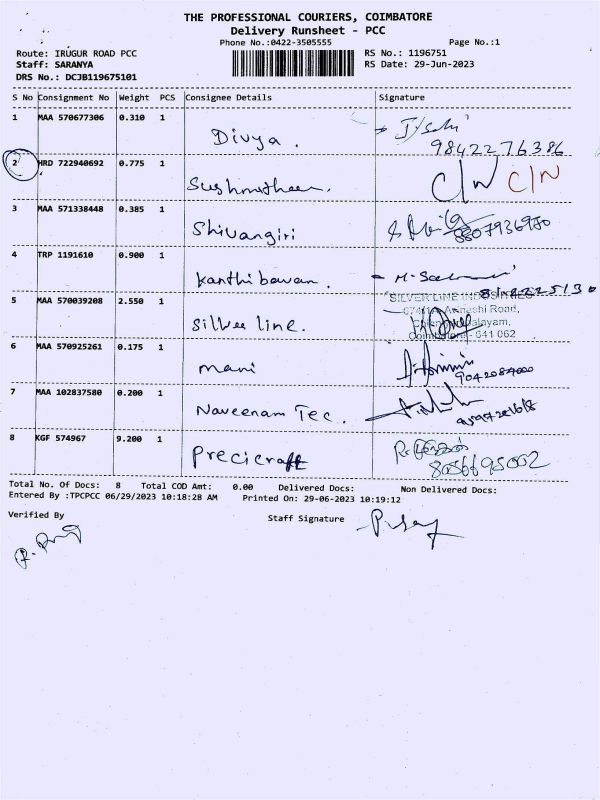 THE PROFESSIONAL COURIERS, COIMBATORE
Delivery Runsheet - PCC
Phone No.:0422-3505555
Page No.:1
Route: IRUGUR ROAD PCC
RS No.: 1196751
Staff: SARANYA
RS Date: 29-Jun-2023
DRS No.: DCJB119675101
S No Consignment No Weight PCS Consignee Details Signature
1 MAA 570677306 0.310 1 Divya.
9842276386
2 HRD 722940692 0.775 1 Sushmitheen. C/N C/N
3 MAA 571338448 0.385 1 Shivangiri
8807936980
4 TRP 1191610 0.900 1 Kanthi bawan.
5 MAA 570039208 2.550 1 Silver line.
SILVER LINE INDUSTRIES
Avinashi Road,
Coimbatore - 641 062
6 MAA 570925261 0.175 1 mani
9042084000
7 MAA 102837580 0.200 1 Naveenam Tec.
8 KGF 574967 9.200 1 Precicraft
8056695002
Total No. Of Docs: 8 Total COD Amt: 0.00 Delivered Docs: Non Delivered Docs:
Entered By :TPCPCC 06/29/2023 10:18:28 AM Printed On: 29-06-2023 10:19:12
Verified By
Staff Signature